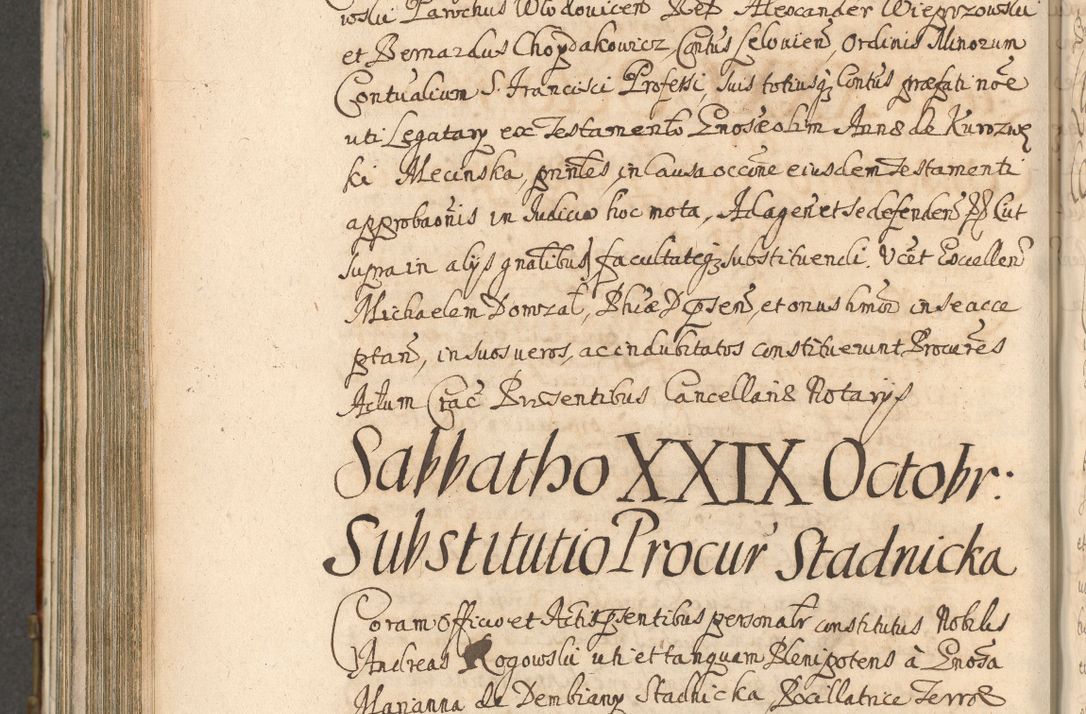 wski Parochus Wlodovicen Ret Alexander Wieprzowski
et Bernardus Choydakowicz, Contus Lelovien, Ordinis Minorum
Contualium S. Francisci Professi, suis totiusq Contus præfati noe
uti Legatary ex Testamento Gnosæ olim Annæ de Kurozwę
ki Mecinska, pntes, in Causa occone eiusdem Testamenti
approbaonis in Judicio hoc mota, Ad agen et se defenden
supra in alys gnalibus facultateq substituendi. Vcet Excellen
Michaelem Domzal, Phiæ D psen, et onus hmoi in se acce
ptan, in suos veros, ac indubitatos constituerunt Procures
Actum Crac Præsentibus Cancellariæ Notarys
Sabbatho XXIX Octobr:
Substitutio Procur Stadnicka
Coram Officio et Actis psentibus personalr constitutus Nobilis
Andreas Rogowski uti et tanquam Plenipotens à Gnosa
Marianna de Dembiany Stadnicka Pocillatrice Terræ